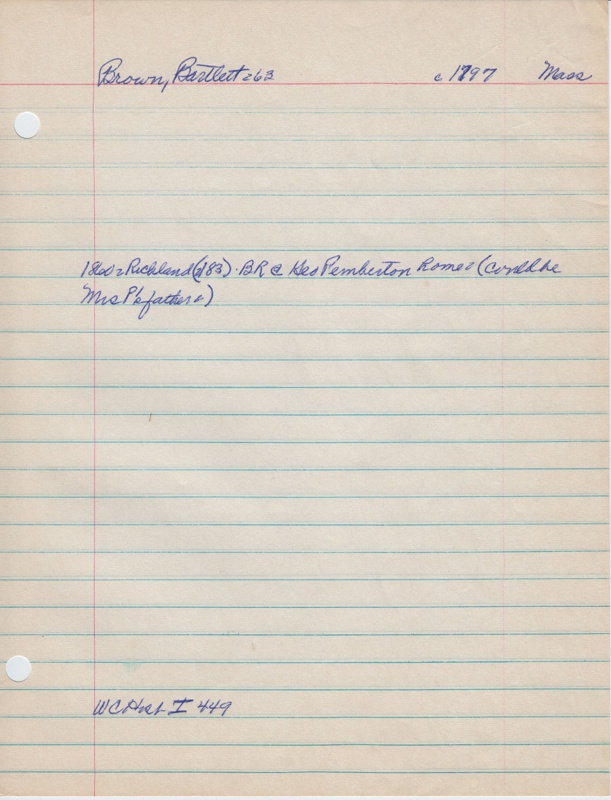 Brown, Bartlett = 63 c 1797 Mass
1860 = Richland (p183) · BR @ Geo Pemberton Rome = (could be
Mrs P's father =)
WCHist I 449